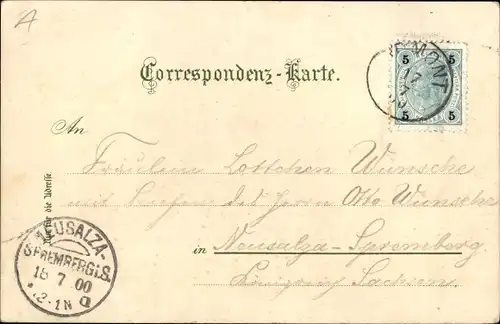 A
Correspondenz-Karte.
5 5
5 5
MONT
17
An
Fräulein Lottchen Wünsche
mit Briefen des Herrn Otto Wünsche
Nur für die Adresse.
in Neusalza-Spremberg
Königreich Sachsen
NEUSALZA-
SPREMBERG i. S.
18 7 00
12-1 N